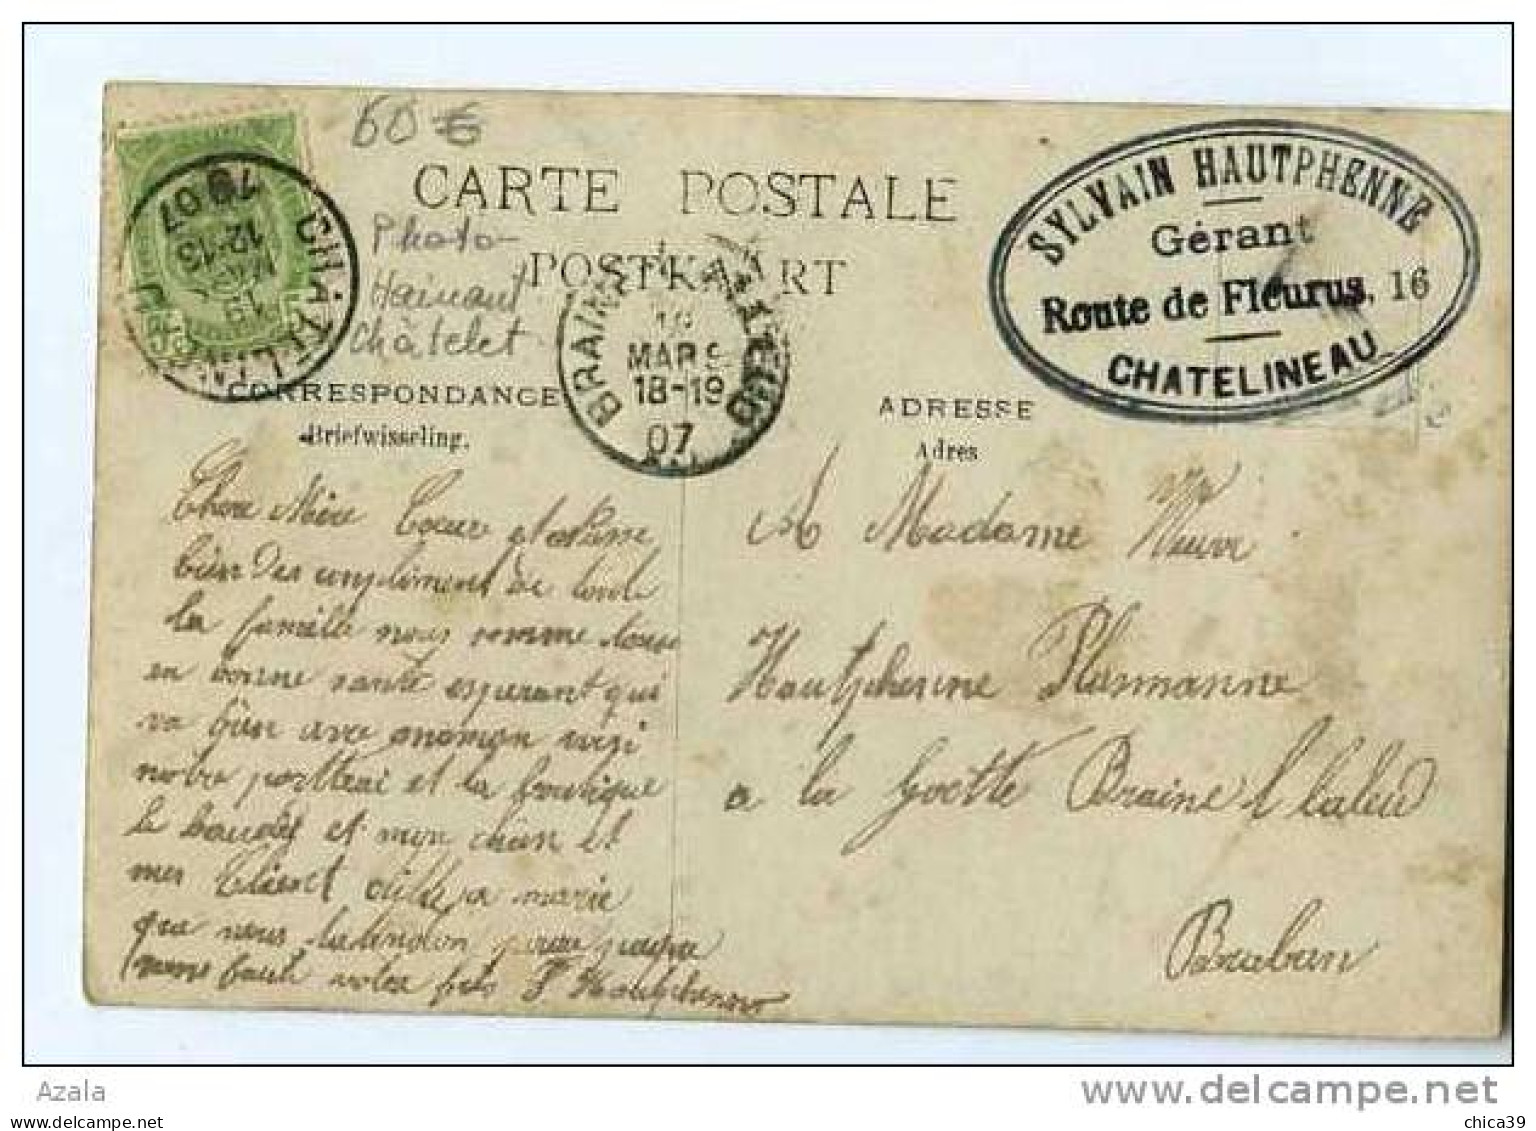 60 €
CARTE POSTALE
POSTKAART
Photo
Hainaut
Châtelet
CHÂTELINEAU
19
MARS
12-13
1907
BRAINE-L'ALLEUD
19
MARS
18-19
07
SYLVAIN HAUTPHENNE
Gérant
Route de Fleurus, 16
CHATELINEAU
CORRESPONDANCE
Briefwisseling.
ADRESSE
Adres
Chere Mère Coeur
bien des compliment de toute
la famille nous somme tous
en bonne santé esperant qui
va bien avec
notre porttrai et la boutique
le baudet et mon chien et
mes Client a marie
que nous
votre fils S Hautphenne
A Madame Veuve
Hautphenne Plasmanne
a la Goette Braine l laleud
Braban
Azala
www.delcampe.net
chica39